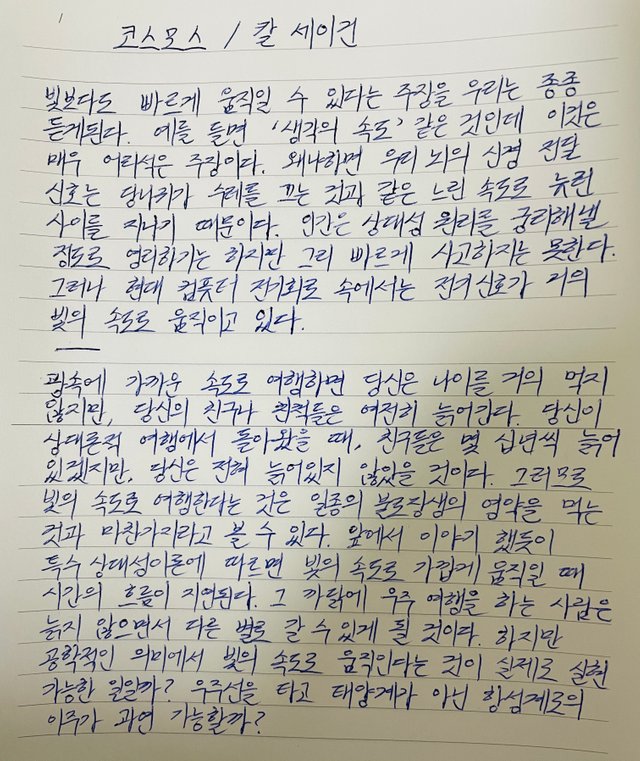 코스모스 / 칼 세이건
빛보다도 빠르게 움직일 수 있다는 주장을 우리는 종종
듣게된다. 예를 들면 '생각의 속도' 같은 것인데 이것은
매우 어리석은 주장이다. 왜냐하면 우리 뇌의 신경 전달
신호는 당나귀가 수레를 끄는 것과 같은 느린 속도로 뉴런
사이를 지나기 때문이다. 인간은 상대성 원리를 궁리해낼
정도로 영리하기는 하지만 그리 빠르게 사고하지는 못한다.
그러나 현대 컴퓨터 전기회로 속에서는 전기신호가 거의
빛의 속도로 움직이고 있다.
광속에 가까운 속도로 여행하면 당신은 나이를 거의 먹지
않지만, 당신의 친구나 친척들은 여전히 늙어간다. 당신이
상대론적 여행에서 돌아왔을 때, 친구들은 몇 십년씩 늙어
있겠지만, 당신은 전혀 늙어있지 않았을 것이다. 그러므로
빛의 속도로 여행한다는 것은 일종의 불로장생의 영약을 먹는
것과 마찬가지라고 볼 수 있다. 앞에서 이야기 했듯이
특수 상대성이론에 따르면 빛의 속도로 가깝게 움직일 때
시간의 흐름이 지연된다. 그 까닭에 우주 여행을 하는 사람은
늙지 않으면서 다른 별로 갈 수 있게 될 것이다. 하지만
공학적인 의미에서 빛의 속도로 움직인다는 것이 실제로 실현
가능한 일일까? 우주선을 타고 태양계가 아닌 항성계로의
이주가 과연 가능할까?